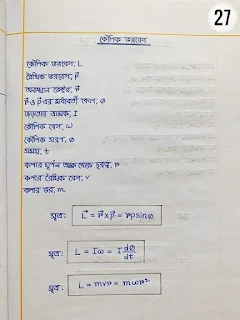 27
কৌণিক ভরবেগ
কৌণিক ভরবেগ, L
রৈখিক ভরবেগ, P⃗
অবস্থান ভেক্টর, r⃗
r⃗ ও P⃗ এর মধ্যবর্তী কোণ, θ
জড়তার ভ্রামক, I
কৌণিক বেগ, ω
কৌণিক সরণ, θ
সময়, t
কণার ঘূর্ণন অক্ষ থেকে দূরত্ব, r
কণার রৈখিক বেগ, v
কণার ভর, m.
সূত্র: L⃗ = r⃗ x p⃗ = rpsinθ
সূত্র: L = Iω = I dθ/dt
সূত্র: L = mvr = mωr²